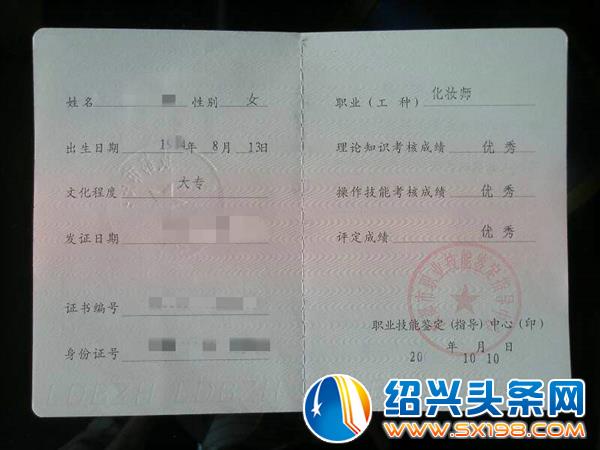 姓名 性别 女
出生日期 19 年 8 月 13日
文化程度 大专
发证日期
证书编号
身份证号
职业（工 种） 化妆师
理论知识考核成绩 优 秀
操作技能考核成绩 优 秀
评定成绩 优 秀
职业技能鉴定（指导）中心（印）
20 年 10 月 10 日
绍兴头条网
www.SX198.com